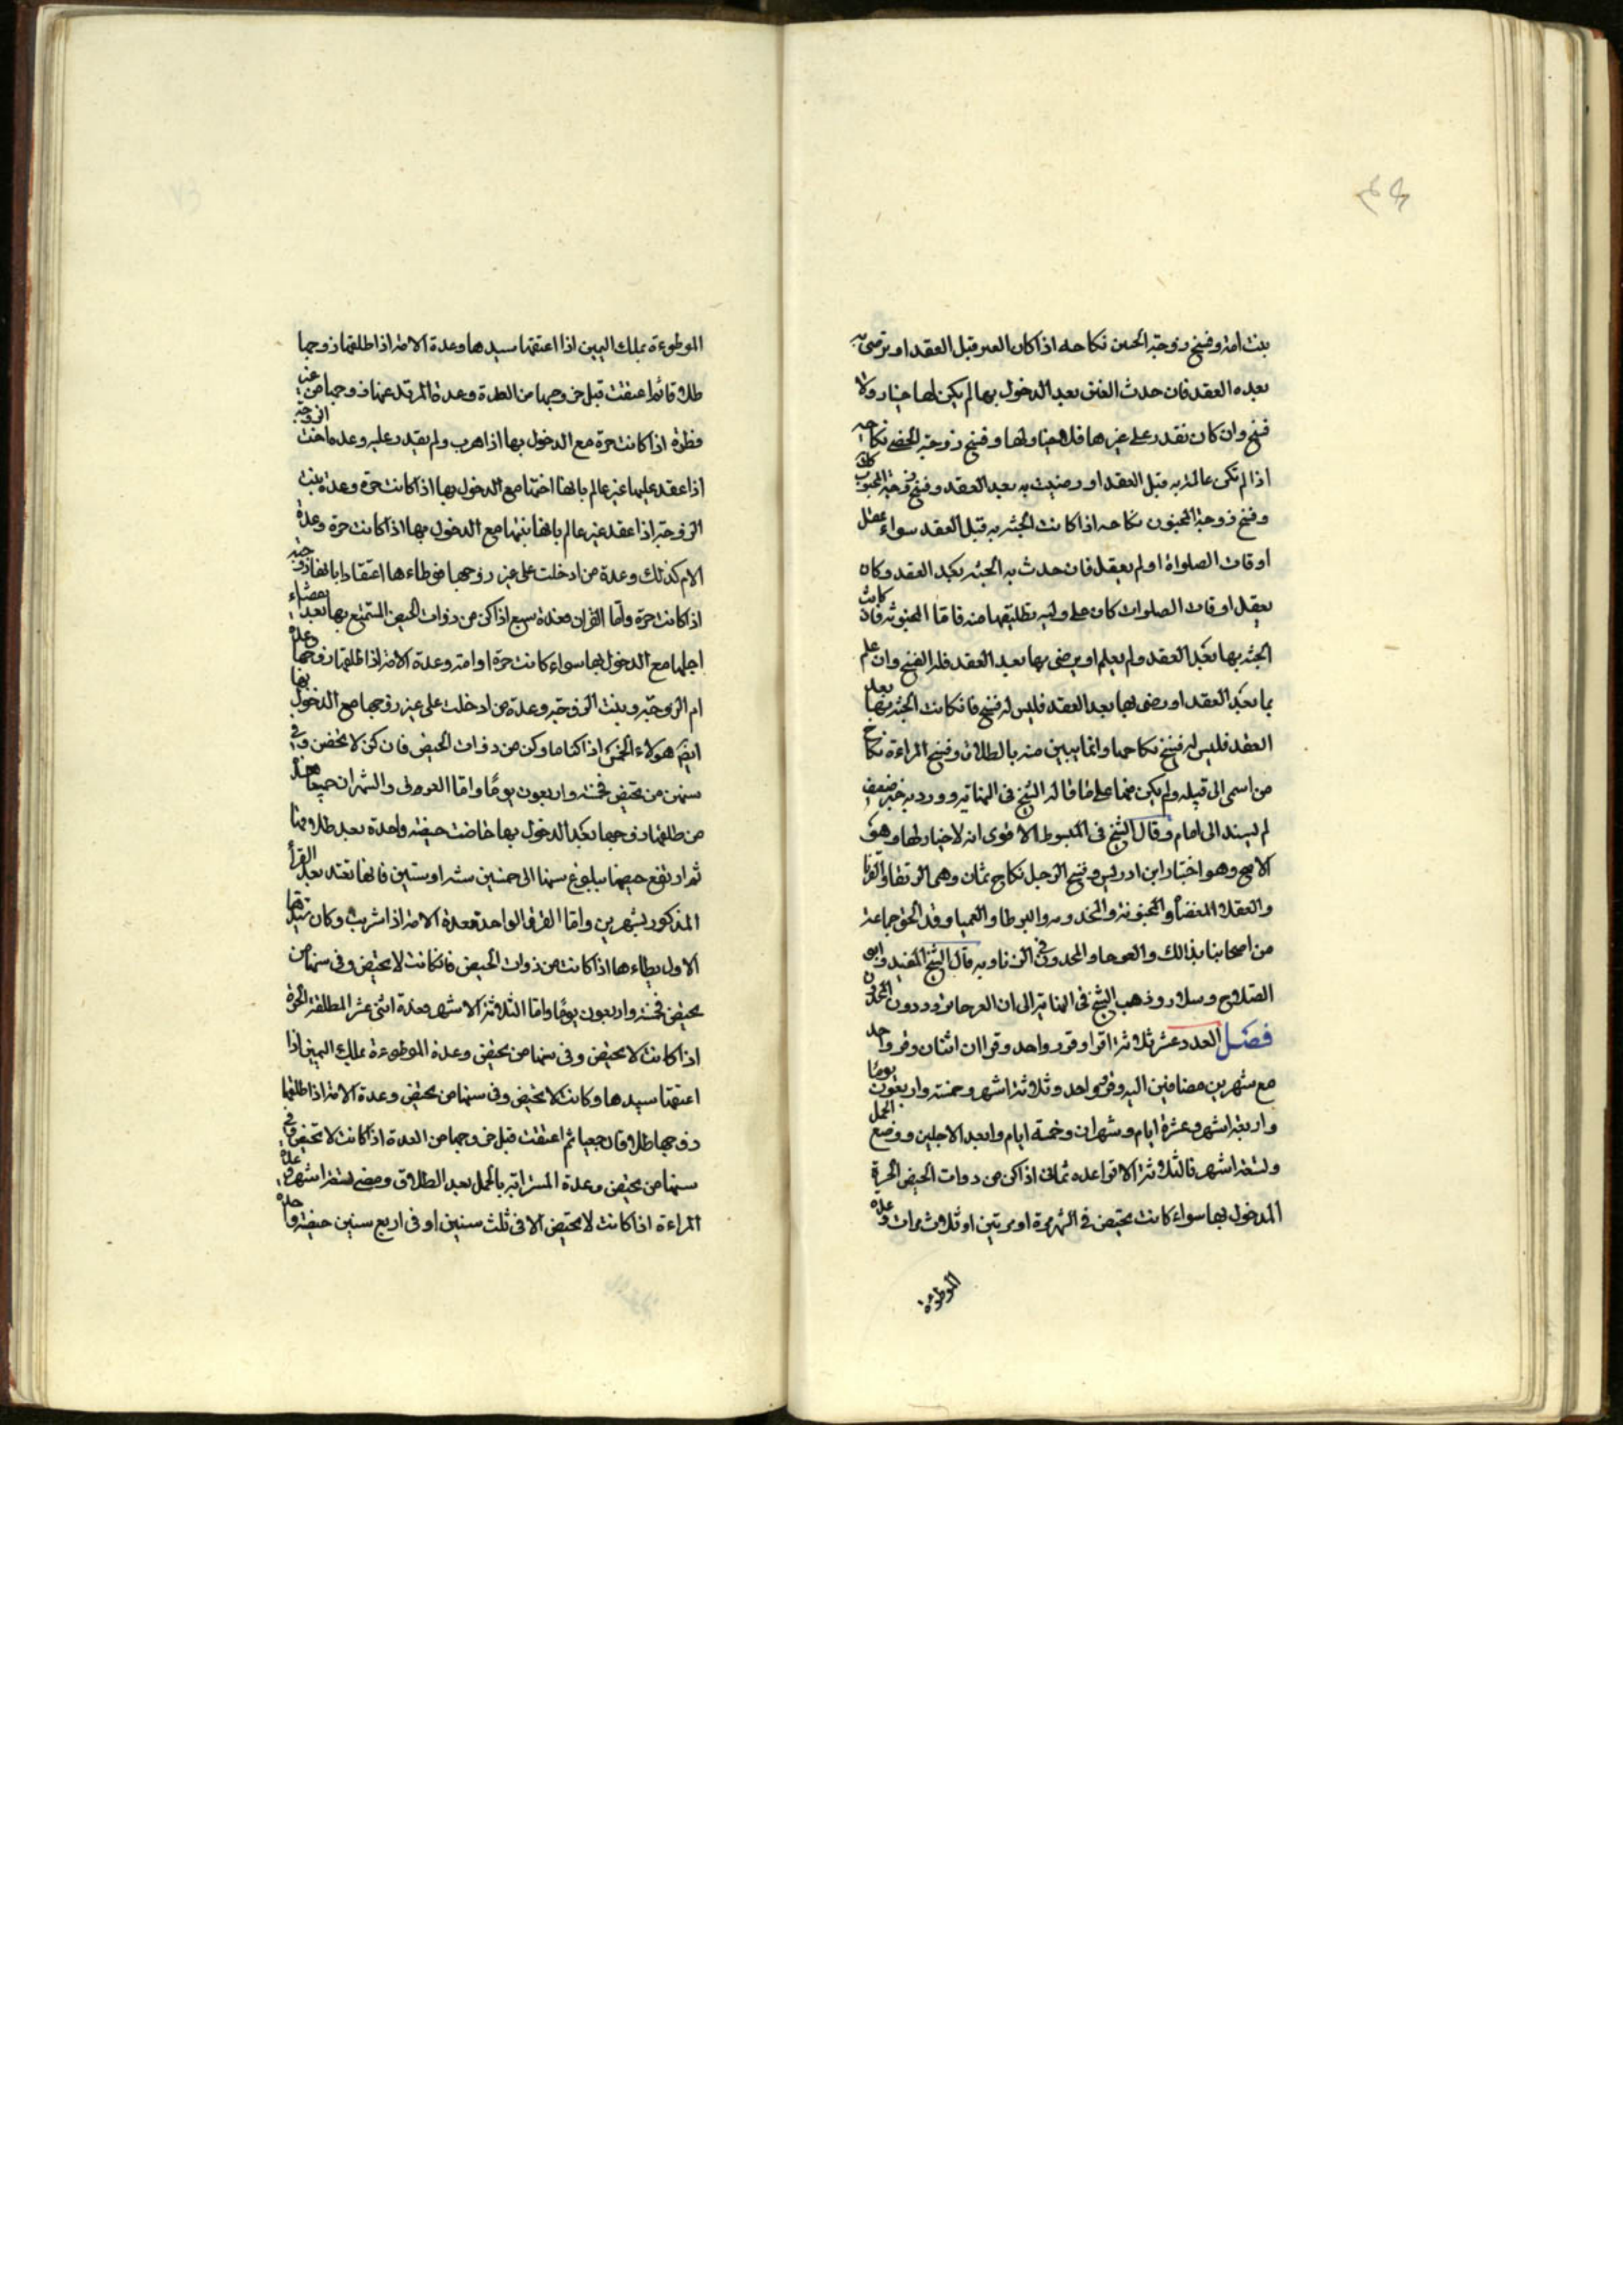 بنت امة وفسخ زوجة العنين نكاحه اذا كان العنن قبل العقد او ترضى به
بعده العقد فان حدث العنن بعد الدخول بها لم يكن لها خيار ولا
فسخ وان كان يقدر على غيرها فلا خيار لها وفسخ زوجة الخصي نكاحه
اذا لم تكن عالمة به قبل العقد او رضيت به بعد العقد وفسخ زوجة المجبوب كذلك
وفسخ زوجة المجنون نكاحه اذا كانت الجنة به قبل العقد سواء عقل
اوقات الصلواة او لم يعقل فان حدث به الجنة بعد العقد وكان
يعقل اوقات الصلوات كان على وليه تطليقها منه فامّا المجنونة فان كانت
الجنة بها بعد العقد ولم يعلم او يرضى بها بعد العقد فله الفسخ وان علم
بها بعد العقد او رضى بها بعد العقد فليس له فسخ فان كانت الجنة بها بعد
العقد فليس له فسخ نكاحها وانما يبين منه بالطلاق وفسخ المراءة نكاح
من اسمى الى قبيله ولم يكن منها على ما قاله الشيخ فى النهاية وورد به خبر ضعيف
لم يسند الى امام وقال الشيخ فى المبسوط الاقوى انه لا خيار لها وهو
الاصح وهو اختيار ابن ادريس وفسخ الرجل نكاح ثمان وهى الرتقا والقرنا
والعقلا المفضاة والمجنونة والمخدومه والبرطا والعميا وقد الحق جماعة
من اصحابنا بذالك والعرجا والمحدود فى الزنا وبه قال الشيخ المفيد وابو
الصلاح وسلار وذهب الشيخ فى النهاية الى ان العرجا مردودة دون المحدود
فصل العدد عشر ثلاثة اقرا وقرء واحد وقراان اثنان وقرء واحد
مع شهرين مضافين اليه وقرء واحد وثلاثة اشهر وخمسة واربعون يومًا
واربعة اشهر وعشرة ايام وشهران وخمسة ايام وابعد الاجلين ووضع الحمل
وتسعة اشهر فالثلاثة الاقرا عده ثمانى اذا كن من ذوات الحيض الحرة
المدخول بها سواء كانت تحيض فى الشهر مرة او مرتين او ثلاث مرات وعدة
الموطوءة
الموطوءة بملك اليمين اذا اعتقها سيدها وعدة الامة اذا طلقها زوجها
طلاقا ثم اعتقت قبل خروجها من العدة وعدة المرتد عنها زوجها من غير
فطرة اذا كانت حرة مع الدخول بها اذا هرب ولم يقدر عليه وعده اخت الزوجة
اذا عقد عليها غير عالم بانها اختها مع الدخول بها اذا كانت حرة وعدة بنت
الزوجة اذا عقد غير عالم بانها بنتها مع الدخول بها اذا كانت حرة وعدة
الام كذلك وعدة من ادخلت على غير زوجها فوطاءها اعتقادا بانها زوجته
اذا كانت حرة وامّا القران فعدة سبع اذا كن من ذوات الحيض المتمتع بها بعد انقضاء
اجلها مع الدخول بها سواء كانت حرة او امة وعدة الامة اذا طلقها زوجها وعدة
ام الزوجة وبنت الزوجة وعدة من ادخلت على غير زوجها مع الدخول بها
ايضًا هولاء الخمس اذا كن اماء وكن من ذوات الحيض فان كن لا يحضن وفى
سنهن من تحيض فخمسة واربعون يومًا وامّا القرء والشهران جميعا فعدة
من طلقها زوجها بعد الدخول بها فحاضت حيضة واحدة بعد طلاقها
ثم ارتفع حيضها ببلوغ سنها الى خمسين سنة او ستين فانها تعتد بعد القرأ
المذكور بشهرين وامّا القرء الواحد فعدة الامة اذا اشريت وكان سيدها
الاول يطاءها اذا كانت من ذوات الحيض فان كانت لا تحيض وفى سنها من
تحيض فخمسة واربعون يومًا وامّا الثلاثة الاشهر فعدة اثنى عشر المطلقة الحرة
اذا كانت لا تحيض وفى سنها من تحيض وعدة الموطوءة بملك اليمين اذا
اعتقها سيدها وكانت لا تحيض وفى سنها من تحيض وعدة الامة اذا طلقها
زوجها طلاقا رجعيا ثم اعتقت قبل خروجها من العدة اذا كانت لا تحيض وفى
سنها من تحيض وعدة المسترابة بالحمل بعد الطلاق ومضى تسعة اشهر وعدة
المراءة اذا كانت لا تحيض الا فى ثلث سنين او فى اربع سنين حيضة واحدة